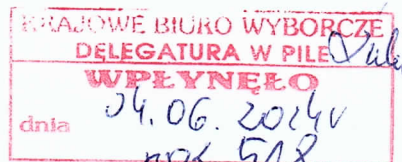 KRAJOWE BIURO WYBORCZE
DELEGATURA W PILE
WPŁYNĘŁO
dnia 04.06.2024r
518